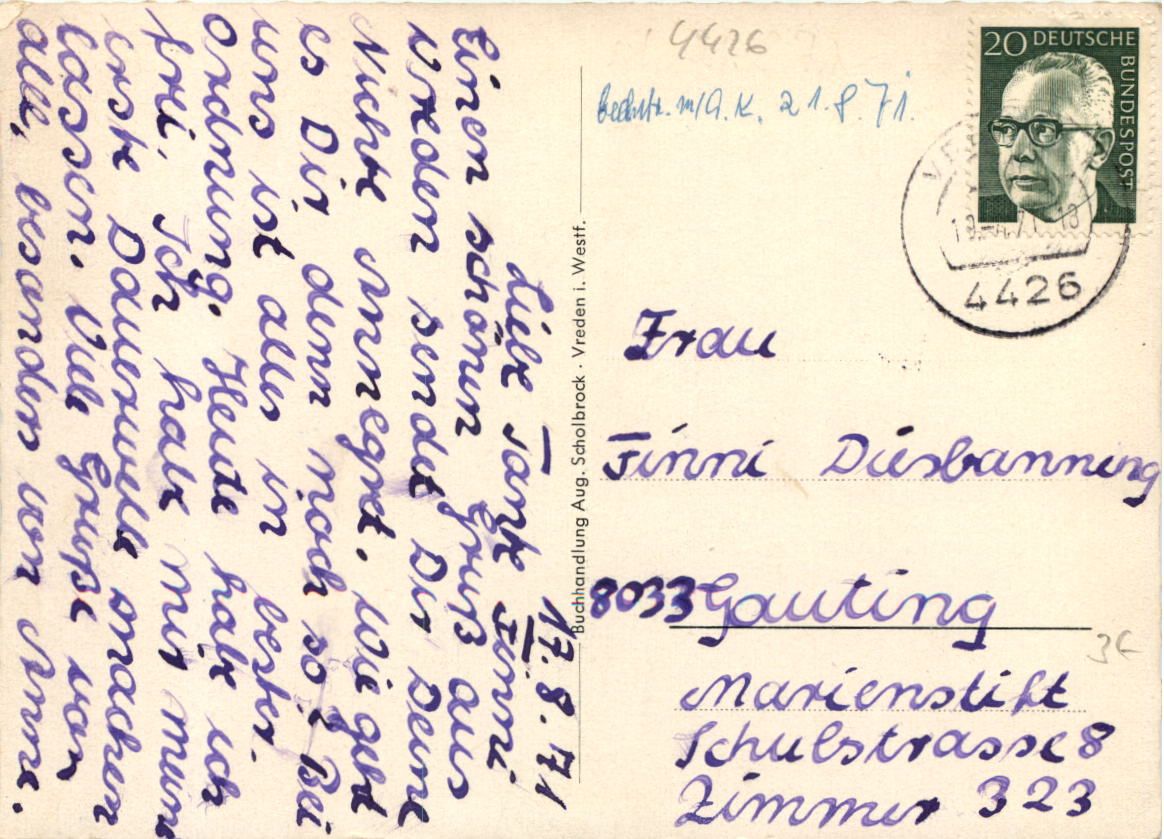 17.8.71
Liebe Tante Finni
Einen schönen Gruß aus
Vreden sendet Dir Deine
Nichte Annegret. Wie geht
es Dir denn noch so? Bei
uns ist alles in bester
Ordnung. Heute habe ich
frei. Ich habe mir meine
erste Dauerwelle machen
lassen. Viele Grüße von
alle, besonders von Anne.
Buchhandlung Aug. Scholbrock · Vreden i. Westf.
4426
m/A.K. 21.8.71.
20 DEUTSCHE
BUNDESPOST
4426
Frau
Finni Diesbanning
8033 Gauting
3€
Marienstift
Schulstrasse 8
Zimmer 323